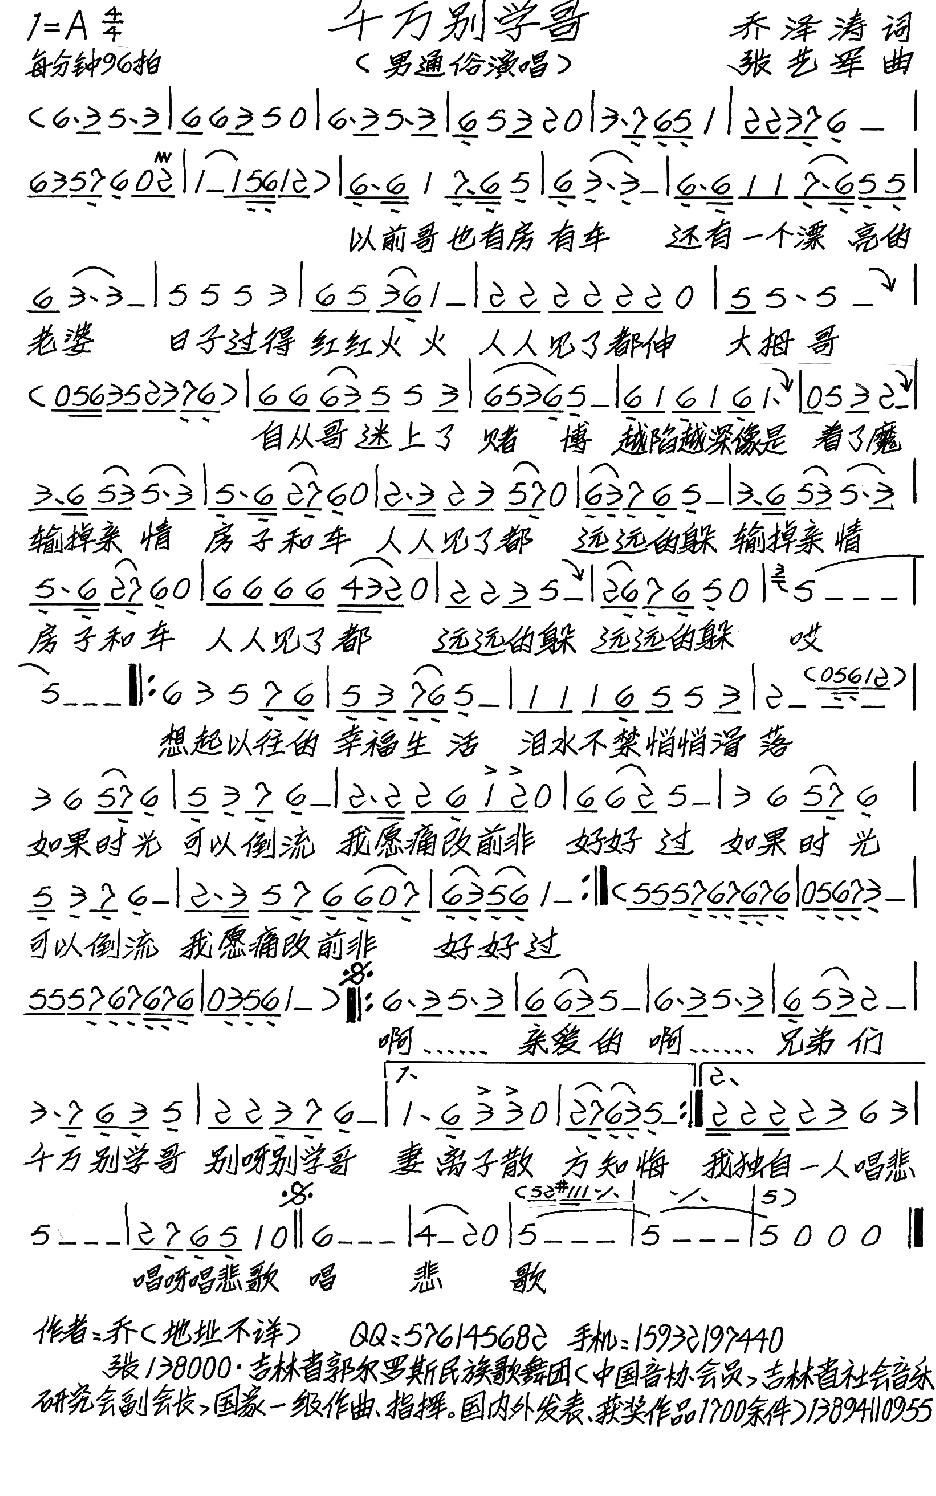 1=A 4/4 千万别学哥 乔泽涛 词
每分钟96拍 (男通俗演唱) 张艺军 曲
(6·35·3|66350|6·35·3|65320|3·7651|22376—|
6357602|1—15612)|6·617·65|63·3—|6·6117·655|
以前哥也有房有车 还有一个漂亮的
63·3—|5553|65361—|2222220|55·5—|
老婆 日子过得红红火火 人人见了都伸 大拇哥
(056352376)|6663553|65365—|616161·|0532—|
自从哥迷上了赌博 越陷越深像是 着了魔
3·6535·3|5·62760|2·323570|63765—|3·6535·3|
输掉亲情 房子和车 人人见了都 远远的躲 输掉亲情
5·62760|66664320|2235—|267650|5———|
房子和车 人人见了都 远远的躲 远远的躲 哎
5———‖:63576|53765—|1116553|2—(05612)|
想起以往的幸福生活 泪水不禁悄悄滑落
36576|5376—|2·226120|6625—|36576|
如果时光 可以倒流 我愿痛改前非 好好过 如果时光
5376—|2·3576607|63561—:‖(555767676|05673—|
可以倒流 我愿痛改前非 好好过
555767676|03561—)‖:6·35·3|6635—|6·35·3|6532—|
啊…… 亲爱的 啊…… 兄弟们
3·7635|22376—|1.1·6330|27635—:‖2.2222363|
千万别学哥 别呀别学哥 妻离子散 方知悔 我独自一人唱悲
5———|276510‖6———|4—20|5———|5———|5000‖
唱呀唱悲歌 唱 悲 歌
作者:乔(地址不详) QQ:576145682 手机:15932197440
张138000·吉林省郭尔罗斯民族歌舞团(中国音协会员,吉林省社会音乐
研究会副会长,国家一级作曲、指挥。国内外发表、获奖作品1700余件)13894110955